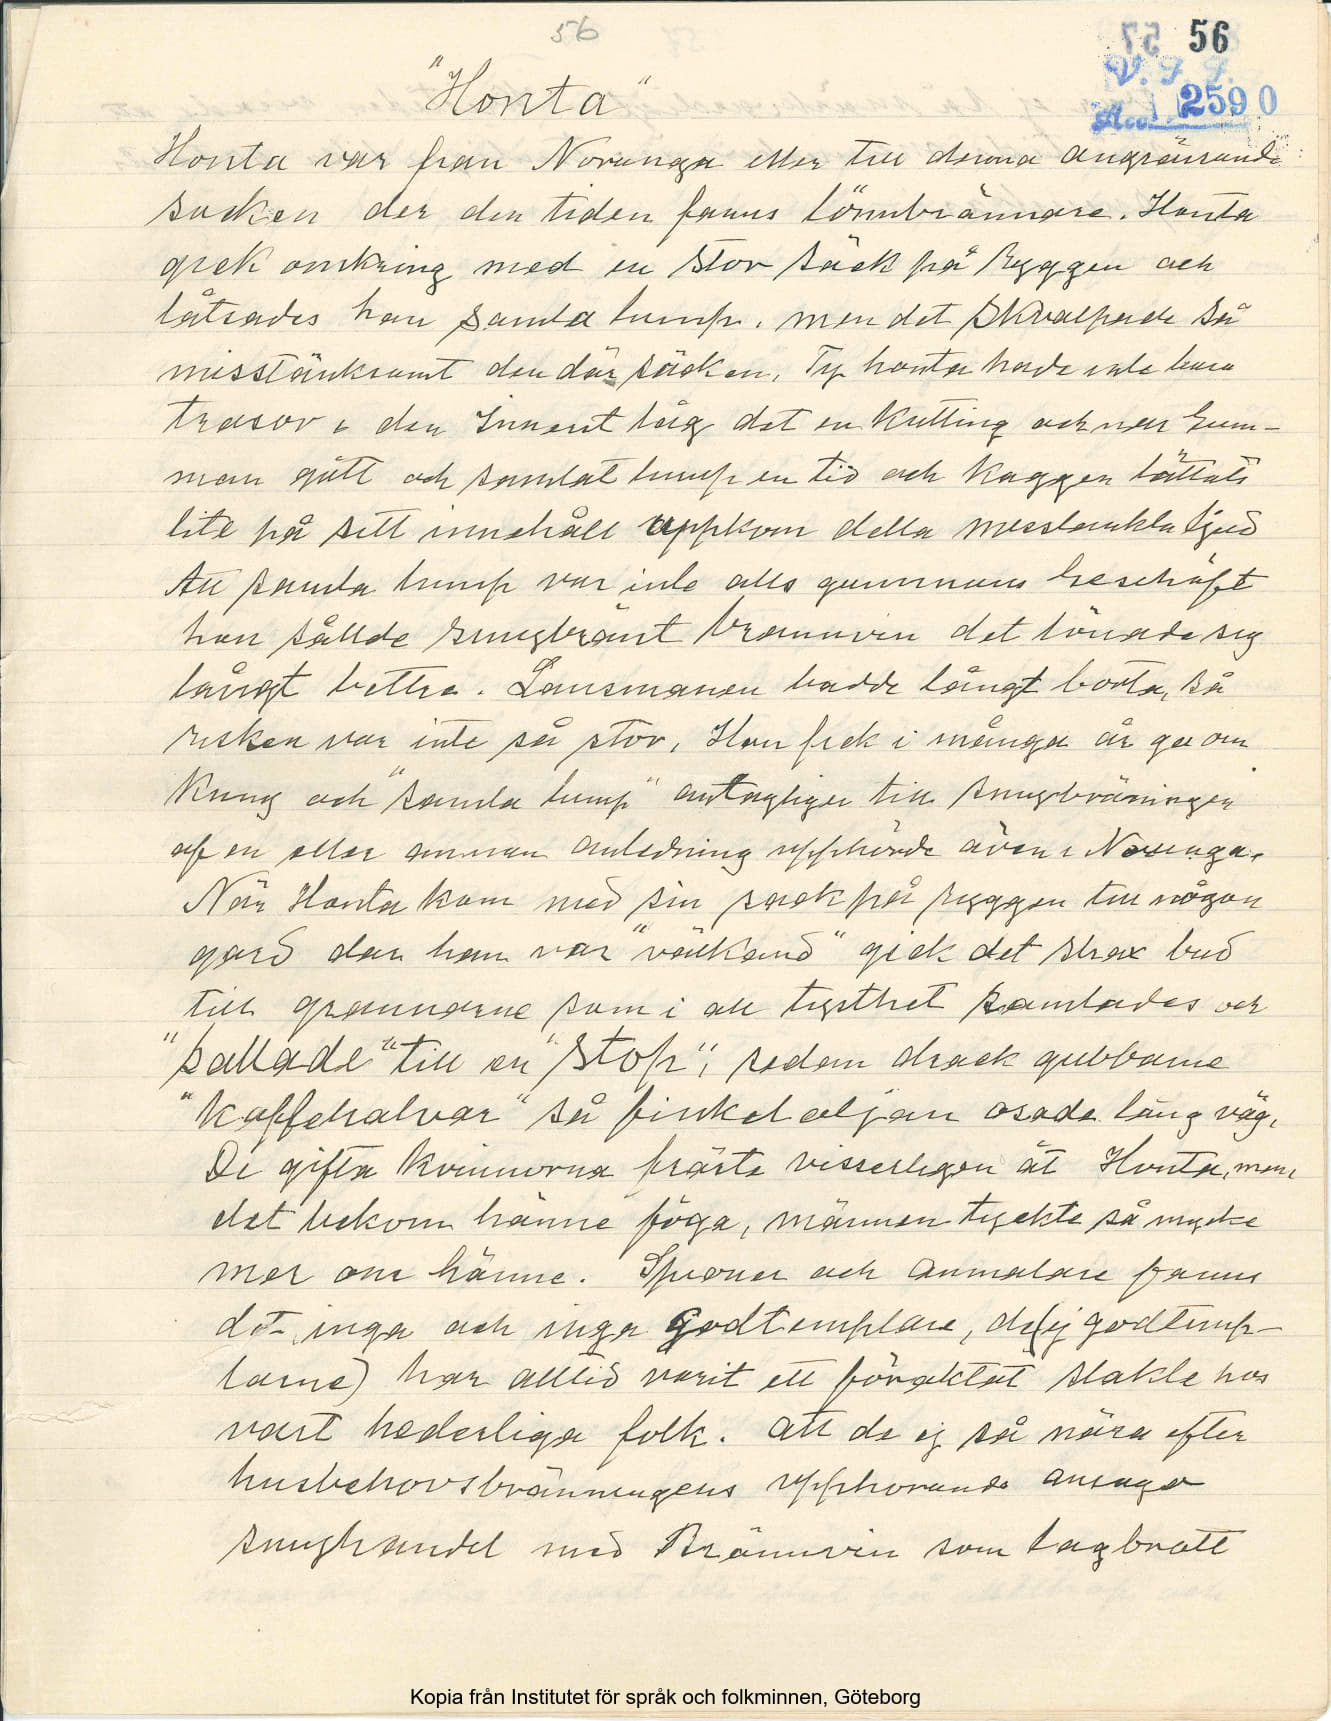 56
56
V. F. F.
Acc. 2590
"Honta"
Honta var från Norunga eller till denna angränsande
socken der den tiden fanns lönnbrännare. Honta
gick omkring med en stor säck på ryggen och
låtsades hon samla lump, men det skvalpade så
misstänksamt den där säcken. Ty honta hade inte bara
trasor i den Innerst låg det en kutting och när Gum-
man gått och samlat lump en tid och kaggen lättats
lite på sitt innehåll uppkom detta misstänkta ljud
Att samla lump var inte alls gummans heschäft
hon sållde smugbränt brännvin det lönade sig
långt bettre. Lansmanen badde långt borta, så
risken var inte så stor, Hon fick i många år gå om
kring och "samla lump" antagligen till smygbräningen
af en eller annan anledning upphörde även i Norunga.
När Honta kom med sin säck på ryggen till någon
gård där hon var "välkänd" gick det strax bud
till grannarne som i all tysthet samlades och
"sallade" till en "stop", sedan drack gubbarne
"kaffehalvar" så finkeloljan osade lång väg.
De gifta kvinnorna fräste visserligen åt Honta, men,
det bekom hänne föga, männen tyckte så mycke
mer om hänne. Spioner och anmälare fanns
det inga och inga godtemplare, de (ej godtemp-
larne) har alltid varit ett föraktat släkte hos
vart hederliga folk. att de ej så nära efter
husbehovsbränningens upphörande ansågo
smughandel med Brännvin som lagbrott
Kopia från Institutet för språk och folkminnen, Göteborg